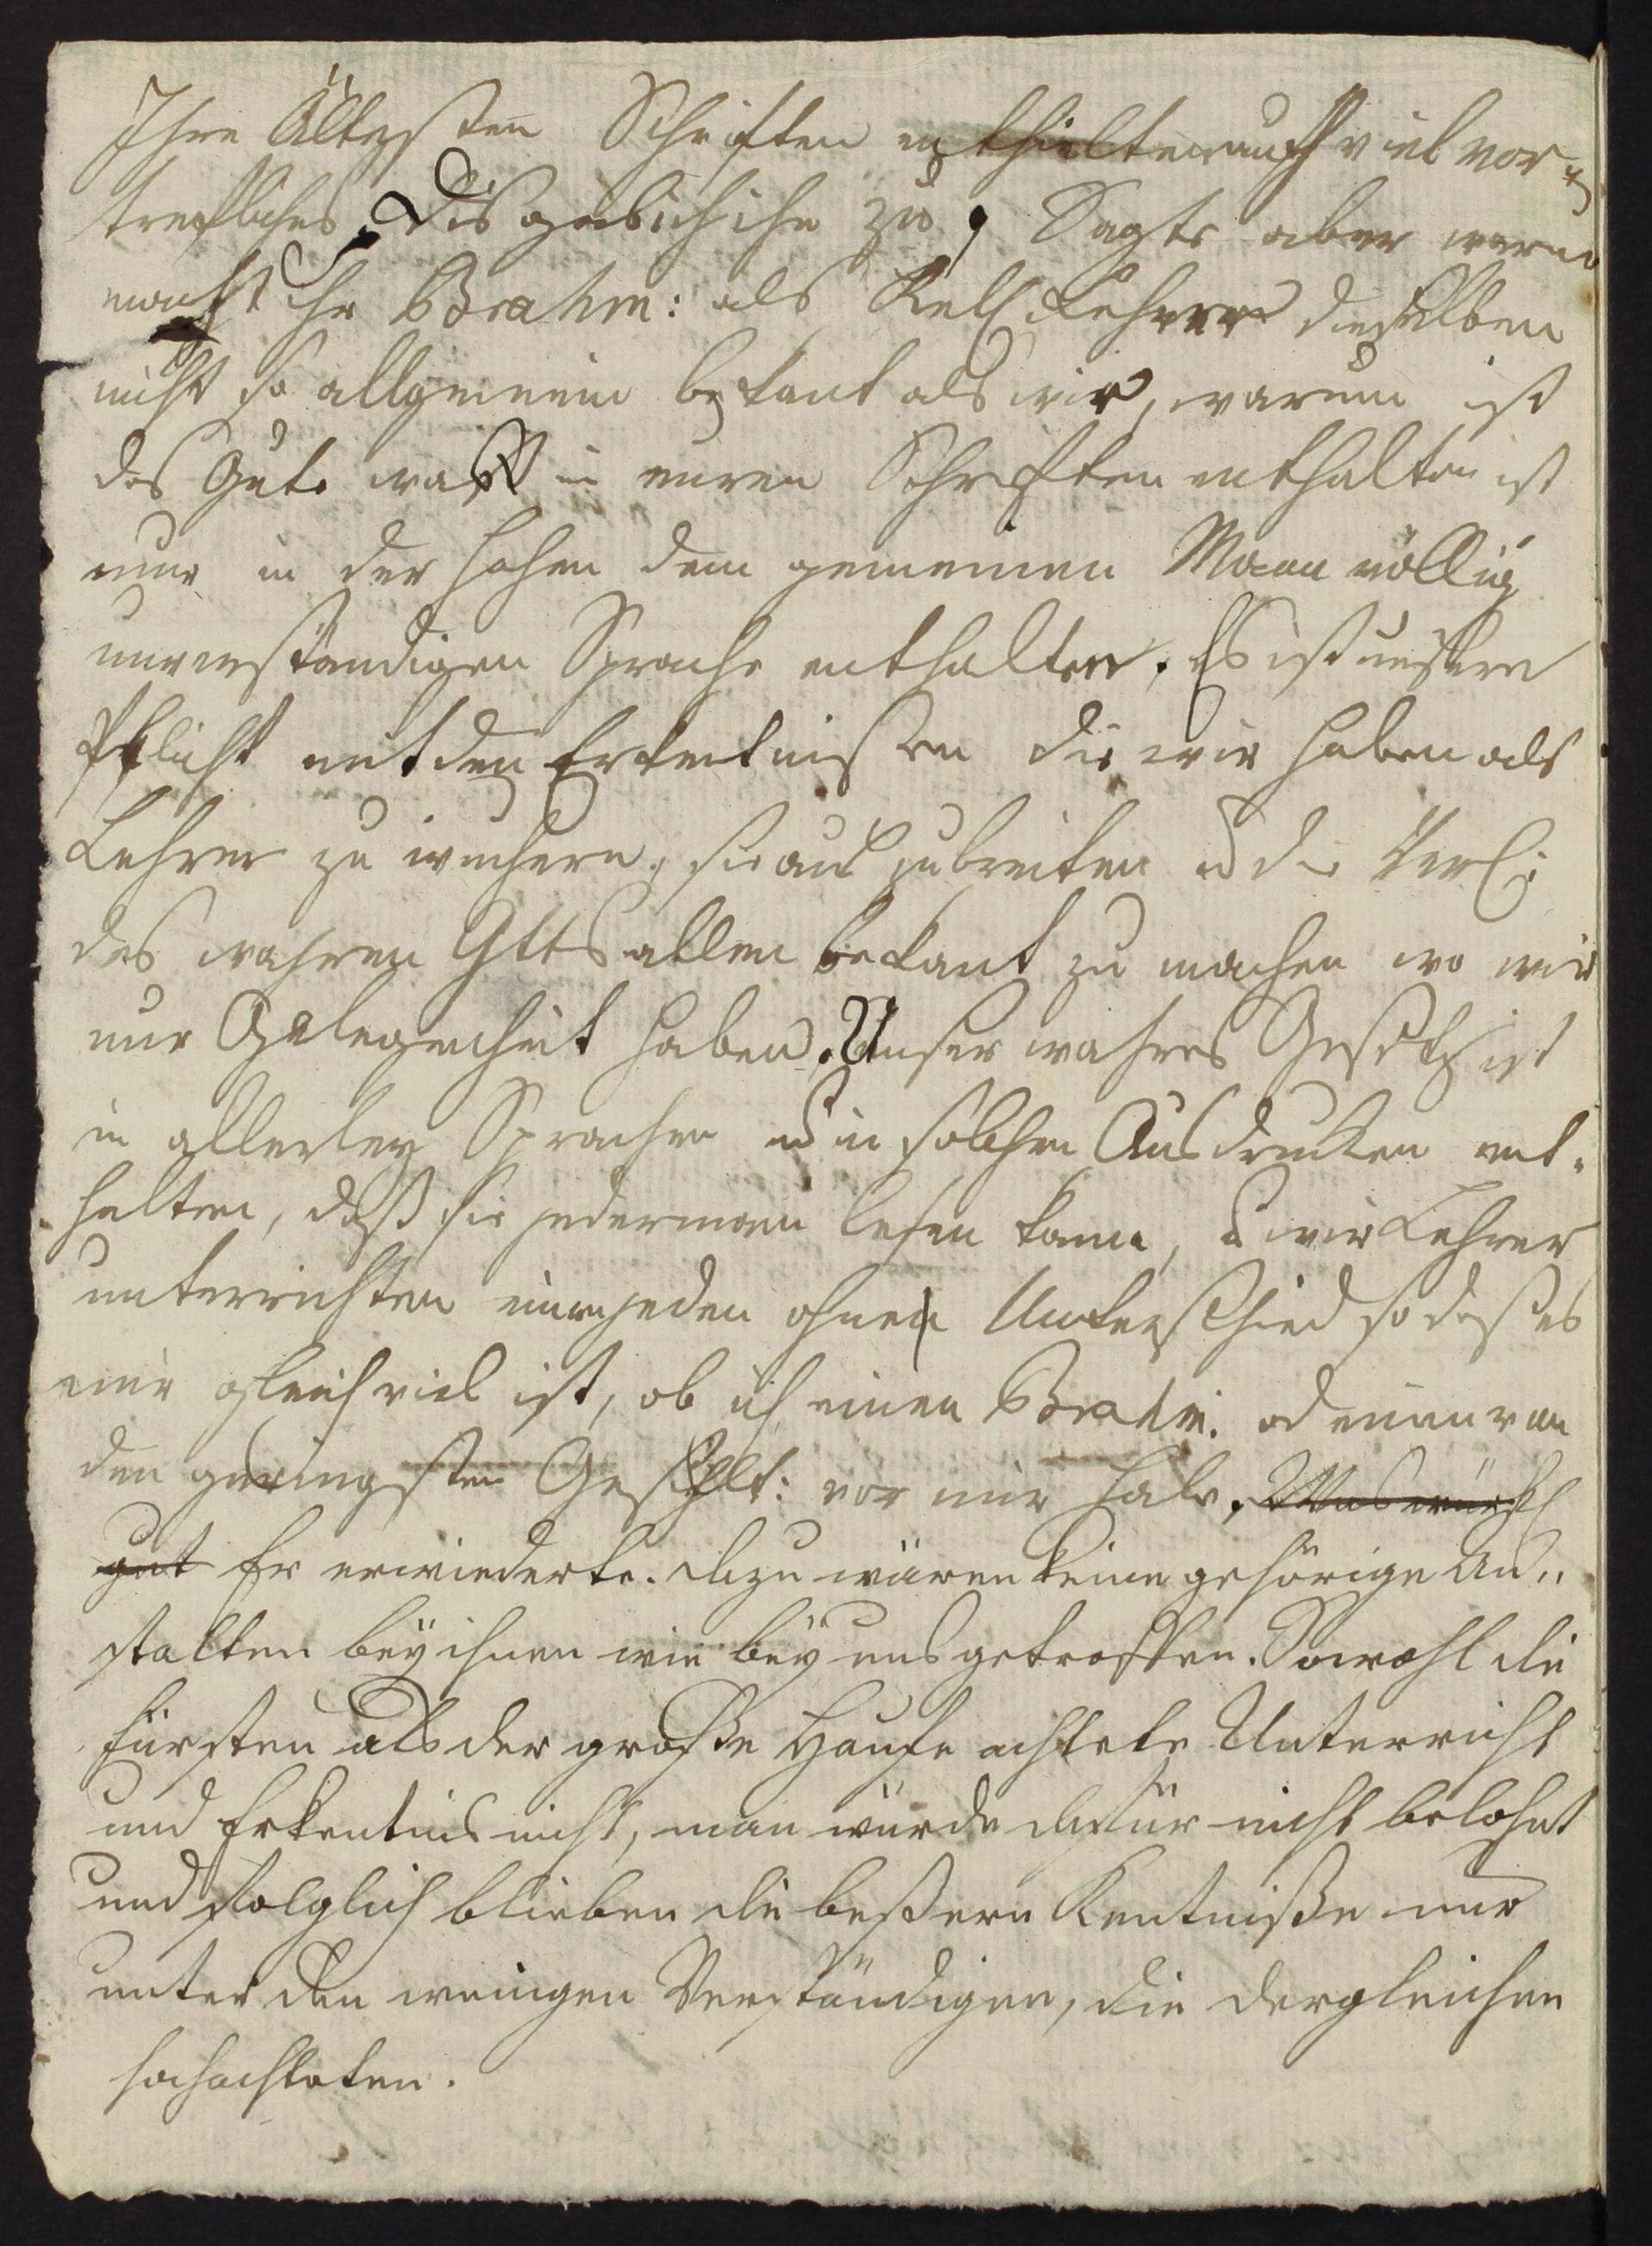 Ihre Ältesten Schriften enthielten auch viel vor-
trefliches. Dis gab ich ihm zu, Sagte aber warum
macht ihr Brahm: als Rel: Lehrer dieselben
nicht so allgemein bekant als wir, warum ist
das Gute waß in euren Schriften enthalten ist
nur in der hohen dem gemeinen Mann völlig
unverständigen Sprache enthalten. Es ist unsere
Pflicht mit den Erkentnißen die wir haben als
Lehrer zu wuchern, sie auszubreiten u die
des wahren Gtts allen bekant zu machen wo wir
nur Gelegenheit haben. Unser wahres Gesetz ist
in allerley Sprachen u in solchen Ausdrucken ent-
halten, daß sie jederman lesen kann, u wir Lehrer
unterrichten einen jeden ohne Unterschied so daß es
mir gleich viel ist, ob ich einen Brahm. od einen von
den geringsten Geschlt: vor mir habe. Was
gut Er erwiederte. dazu wären keine gehörige An-
stalten bey ihnen wie bey uns getroffen. Sowohl die
Fürsten als der große Haufe achtete Unterricht
und Erkentnis nicht, man würde dafür nicht belohnt
und folglich blieben die beßern Kentniße nur
unter den wenigen Verständigen, die dergleichen
hochachteten.